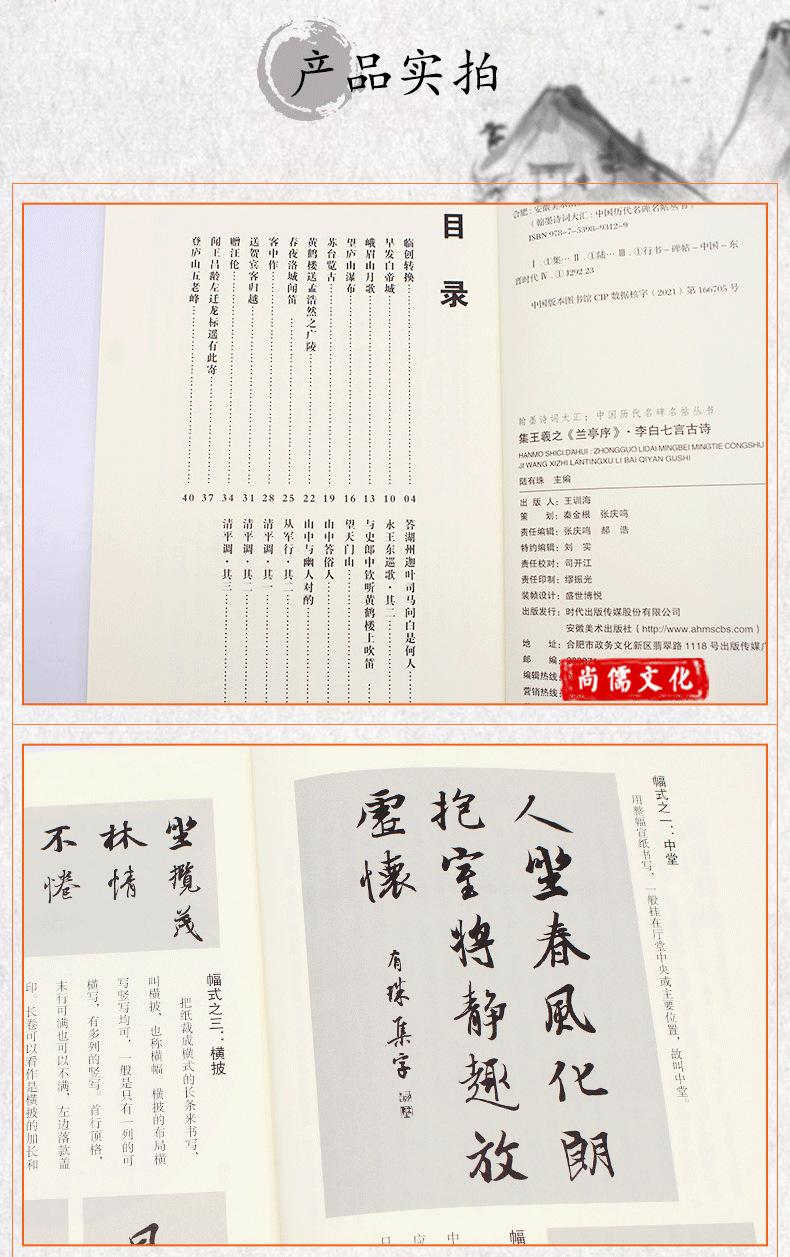 产品实拍
目录
临创转换 04
早发白帝城 10
峨眉山月歌 13
望庐山瀑布 16
苏台览古 19
黄鹤楼送孟浩然之广陵 22
春夜洛城闻笛 25
客中作 28
送贺宾客归越 31
赠汪伦 34
闻王昌龄左迁龙标遥有此寄 37
登庐山五老峰 40
答湖州迦叶司马问白是何人
永王东巡歌·其二
与史郎中钦听黄鹤楼上吹笛
望天门山
山中答俗人
山中与幽人对酌
从军行·其二
清平调·其一
清平调·其二
清平调·其三
(翰墨诗词大汇:中国历代名碑名帖丛书)
ISBN 978-7-5398-9312-9
Ⅰ.①集… Ⅱ.①陆… Ⅲ.①行书-碑帖-中国-东
晋时代 Ⅳ.①J292.23
中国版本图书馆 CIP 数据核字(2021)第 166705 号
翰墨诗词大汇:中国历代名碑名帖丛书
集王羲之《兰亭序》·李白七言古诗
HANMO SHICI DAHUI : ZHONGGUO LIDAI MINGBEI MINGTIE CONGSHU
JI WANG XIZHI LANTINGXU LI BAI QIYAN GUSHI
陆有珠 主编
出 版 人:王训海
策 划:秦金根 张庆鸣
责任编辑:张庆鸣 郝 浩
特约编辑:刘 实
责任校对:司开江
责任印制:缪振光
装帧设计:盛世博悦
出版发行:时代出版传媒股份有限公司
安徽美术出版社(http://www.ahmscbs.com)
地 址:合肥市政务文化新区翡翠路 1118 号出版传媒广
邮 编:
编辑热线:
营销热线:
尚儒文化
幅式之一:中堂
用整幅宣纸书写,一般挂在厅堂中央或主要位置,故叫中堂。
人坐春风化朗
抱室将静趣放
虚怀
有珠集字
坐揽茂
林情
不惓
幅式之三:横披
把纸裁成横式的长条来书写,
叫横披,也称横幅。横披的布局横
写竖写均可,一般是只有一列的可
横写,有多列的竖写。首行顶格,
末行可满也可以不满,左边落款盖
印。长卷可以看作是横披的加长和
幅
中
应